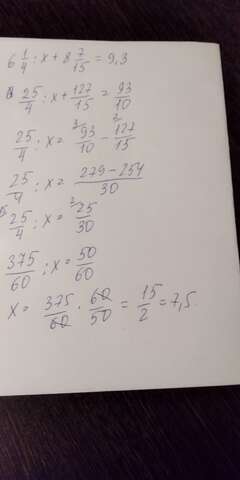 6 1/4 : x + 8 7/15 = 9,3
25/4 : x + 127/15 = 93/10
25/4 : x = ³93/10 - ²127/15
25/4 : x = (279 - 254)/30
¹⁵25/4 : x = ²25/30
375/60 : x = 50/60
x = 375/60 · 60/50 = 15/2 = 7,5.